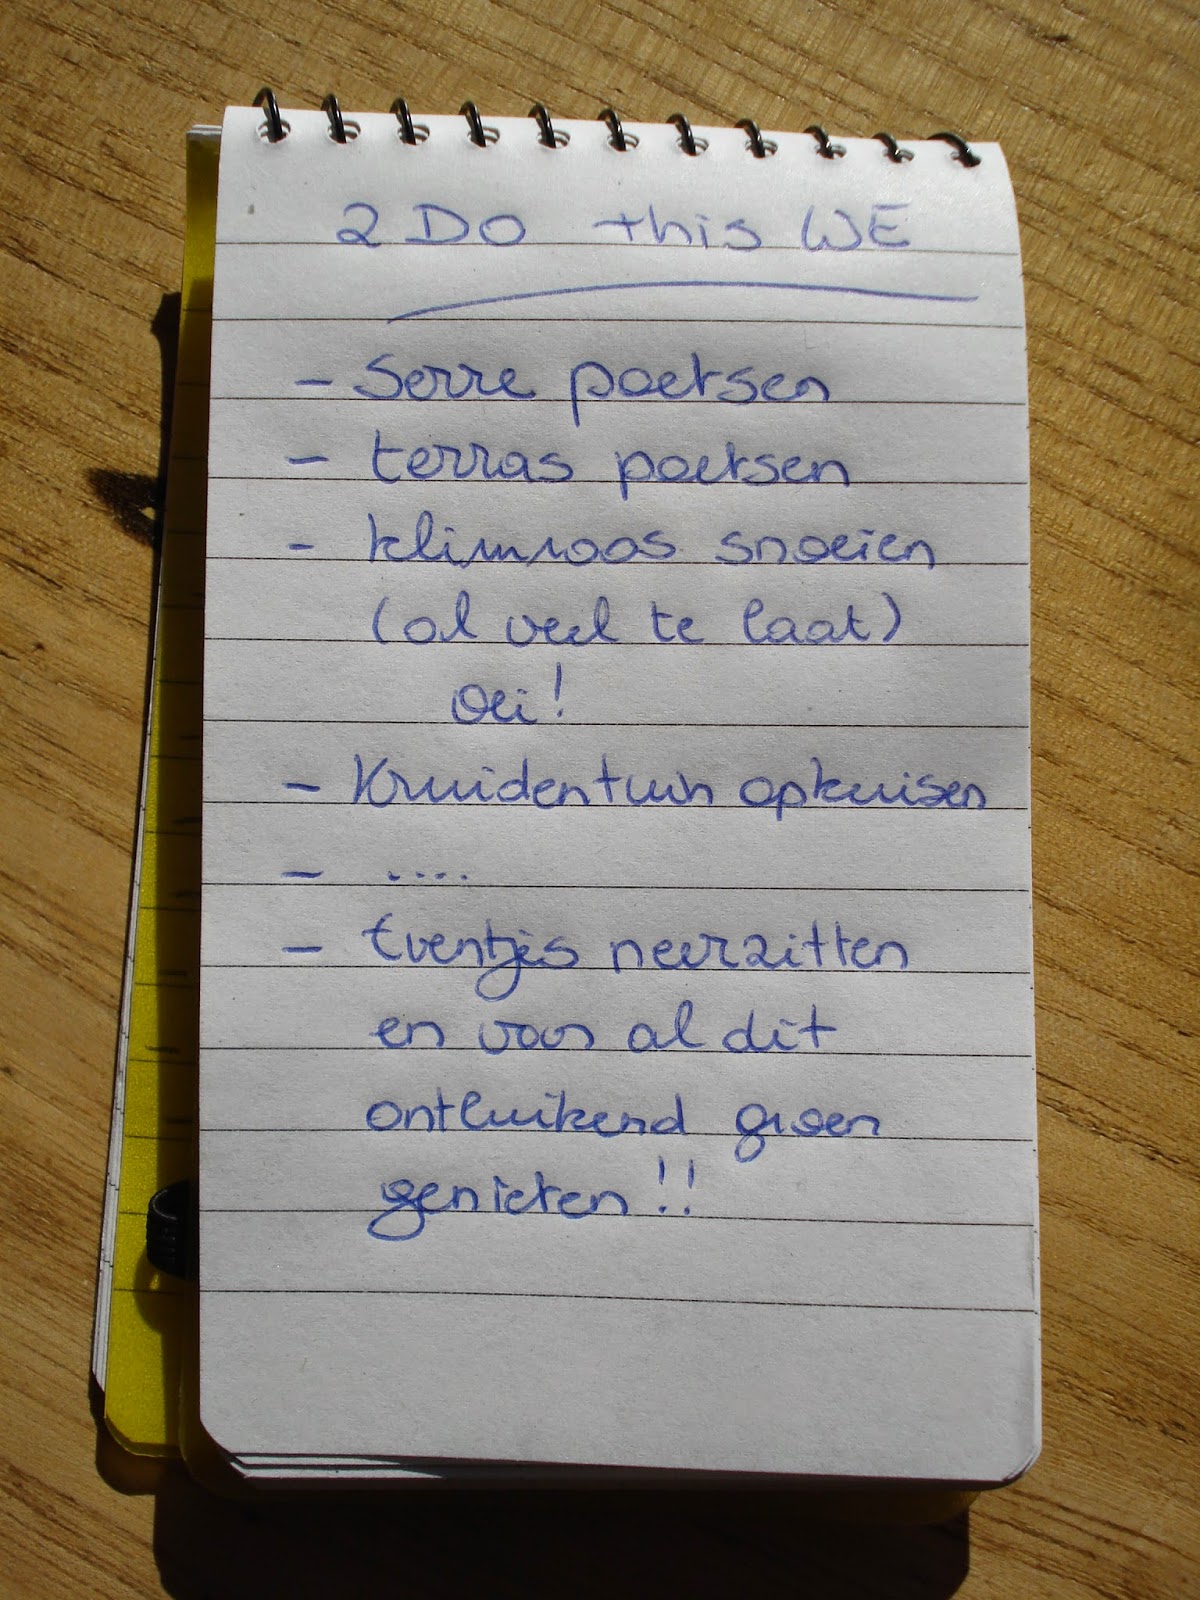 2 DO this WE
- Serre poetsen
- terras poetsen
- klimroos snoeien
(al veel te laat)
oei!
- Kruidentuin opkuisen
- ....
- Eventjes neerzitten
en van al dit
ontluikend groen
genieten!!